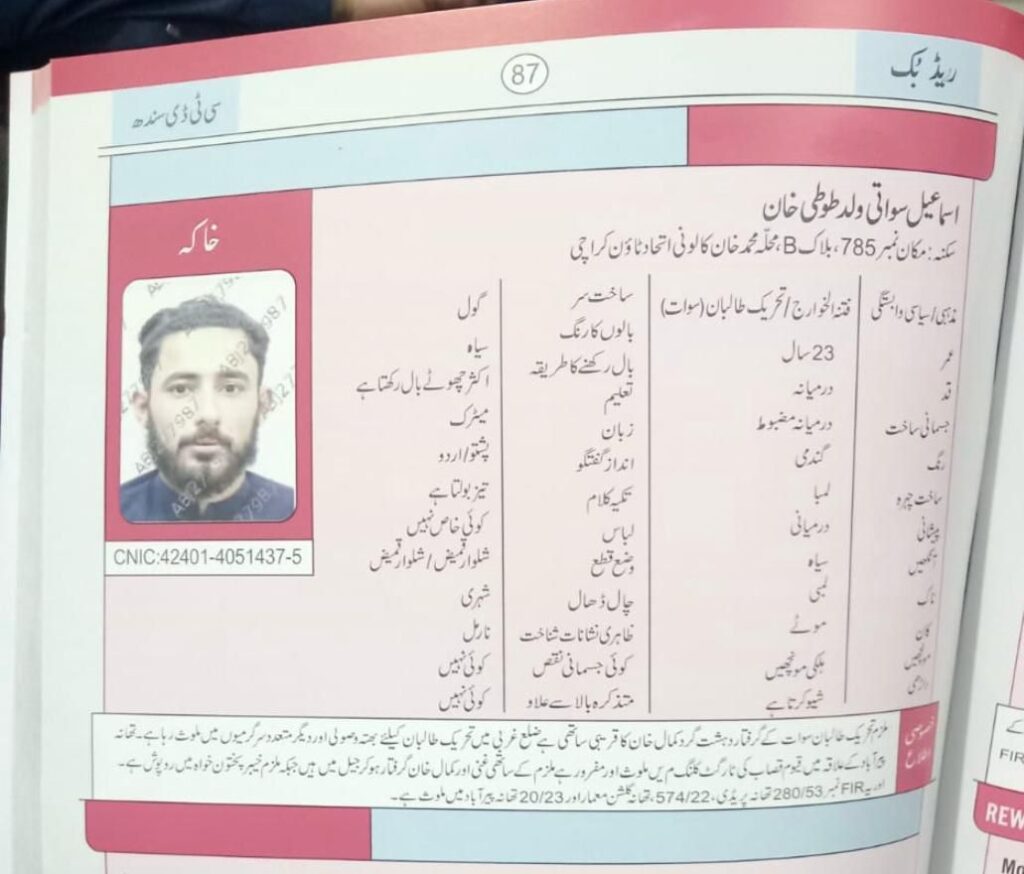 ریڈ بُک
87
سی ٹی ڈی سندھ
اسماعیل سواتی ولد طوطی خان
سکنہ: مکان نمبر 785، بلاک B، محلّہ محمد خان کالونی اتحاد ٹاؤن کراچی
خاکہ
CNIC:42401-4051437-5
مذہبی/سیاسی وابستگی فتنۃ الخوارج/تحریک طالبان (سوات)
عمر 23 سال
قد درمیانہ
جسمانی ساخت درمیانہ مضبوط
رنگ گندمی
ساخت چہرہ لمبا
پیشانی درمیانی
آنکھیں سیاہ
ناک لمبی
کان موٹے
مونچھیں ہلکی مونچھیں
داڑھی شیو کرتا ہے
ساخت سر گول
بالوں کا رنگ سیاہ
بال رکھنے کا طریقہ اکثر چھوٹے بال رکھتا ہے
تعلیم میٹرک
زبان پشتو/اردو
انداز گفتگو تیز بولتا ہے
تکیہ کلام کوئی خاص نہیں
لباس شلوار قمیض/شلوار قمیض
وضع قطع شہری
چال ڈھال نارمل
ظاہری نشانات شناخت کوئی نہیں
کوئی جسمانی نقص کوئی نہیں
متذکرہ بالا سے علاو
خصوصی اطلاع
ملزم تحریک طالبان سوات کے گرفتار دہشت گرد کمال خان کا قریبی ساتھی ہے ضلع غربی میں تحریک طالبان کیلئے بھتہ وصولی اور دیگر متعدد سرگرمیوں میں ملوث رہا ہے۔ تھانہ
پیرآباد کے علاقہ میں قیوم قصاب کی ٹارگٹ کلنگ میں ملوث اور مفرور ہے ملزم کے ساتھی غنی اور کمال خان گرفتار ہو کر جیل میں ہیں جبکہ ملزم خیبر پختون خواہ میں روپوش ہے۔
اور یہ FIR نمبر 280/53 تھانہ پریڈی، 574/22، تھانہ گلشن معمار اور 20/23 تھانہ پیرآباد میں ملوث ہے۔
FIR
REW
Mo